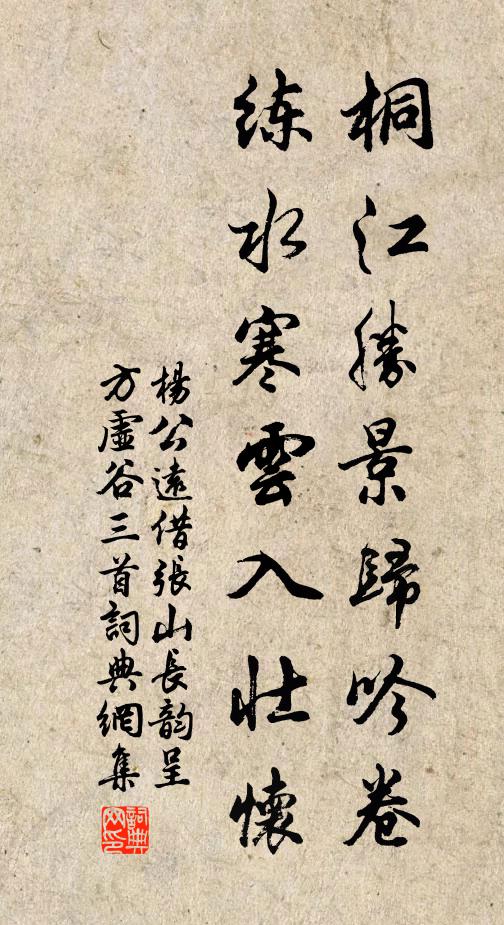 桐江勝景歸吟卷
練水寒雲入壯懷
楊公遠借張山長韵呈
方虛谷三首詞典網集
詞典
网印